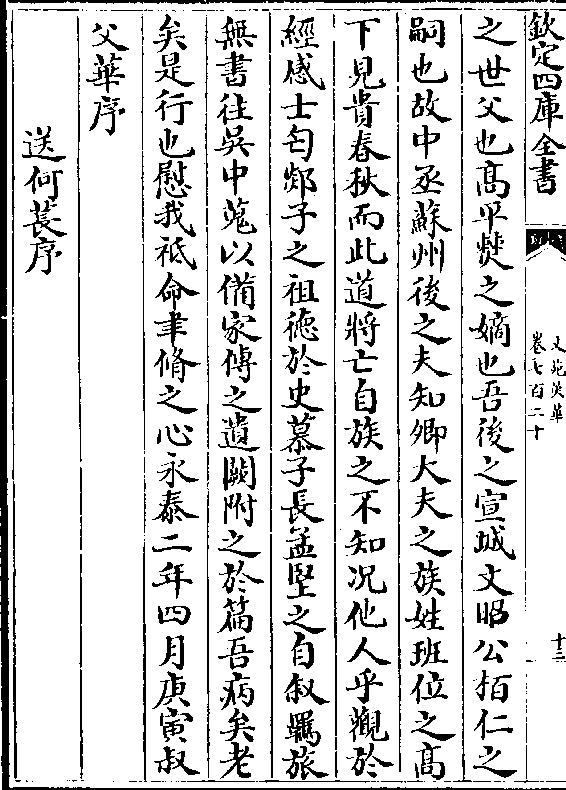 欽定四庫全書
文苑英華
卷七百二十
十三
之世父也髙平㷼之嫡也吾後之宣城文昭公栢仁之
嗣也故中丞蘇州後之夫知卿大夫之族姓班位之髙
下見貴春秋而此道將亡自族之不知况他人乎觀於
經感士匄郯子之祖徳於史慕子長孟堅之自叙羈旅
無書往吳中蒐以備家傳之遺闕附之於篇吾病矣老
矣是行也慰我祇命聿脩之心永泰二年四月庚寅叔
父華序
送何萇序